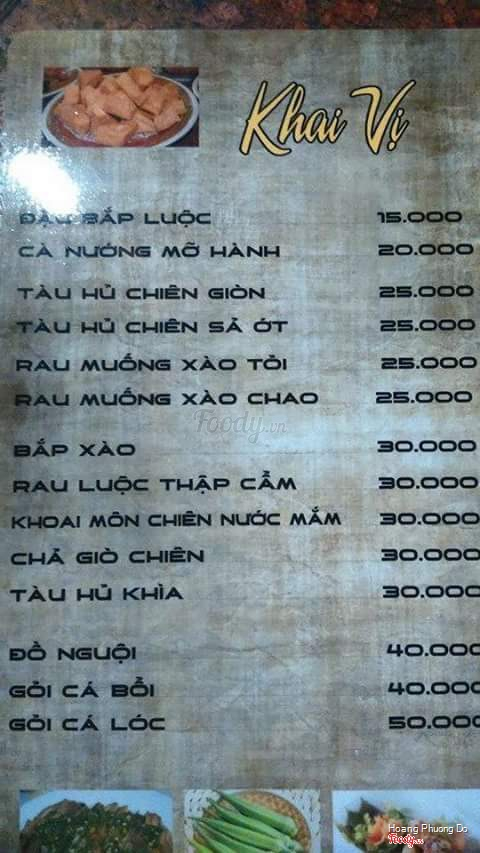 Khai Vị
ĐẬU BẮP LUỘC 15.000
CÀ NƯỚNG MỠ HÀNH 20.000
TÀU HỦ CHIÊN GIÒN 25.000
TÀU HỦ CHIÊN SẢ ỚT 25.000
RAU MUỐNG XÀO TỎI 25.000
RAU MUỐNG XÀO CHAO 25.000
Foody.vn
BẮP XÀO 30.000
RAU LUỘC THẬP CẨM 30.000
KHOAI MÔN CHIÊN NƯỚC MẮM 30.000
CHẢ GIÒ CHIÊN 30.000
TÀU HỦ KHÌA 30.000
ĐỒ NGUỘI 40.000
GỎI CÁ BỔI 40.000
GỎI CÁ LÓC 50.000
Hoang Phuong Do
Foody.vn